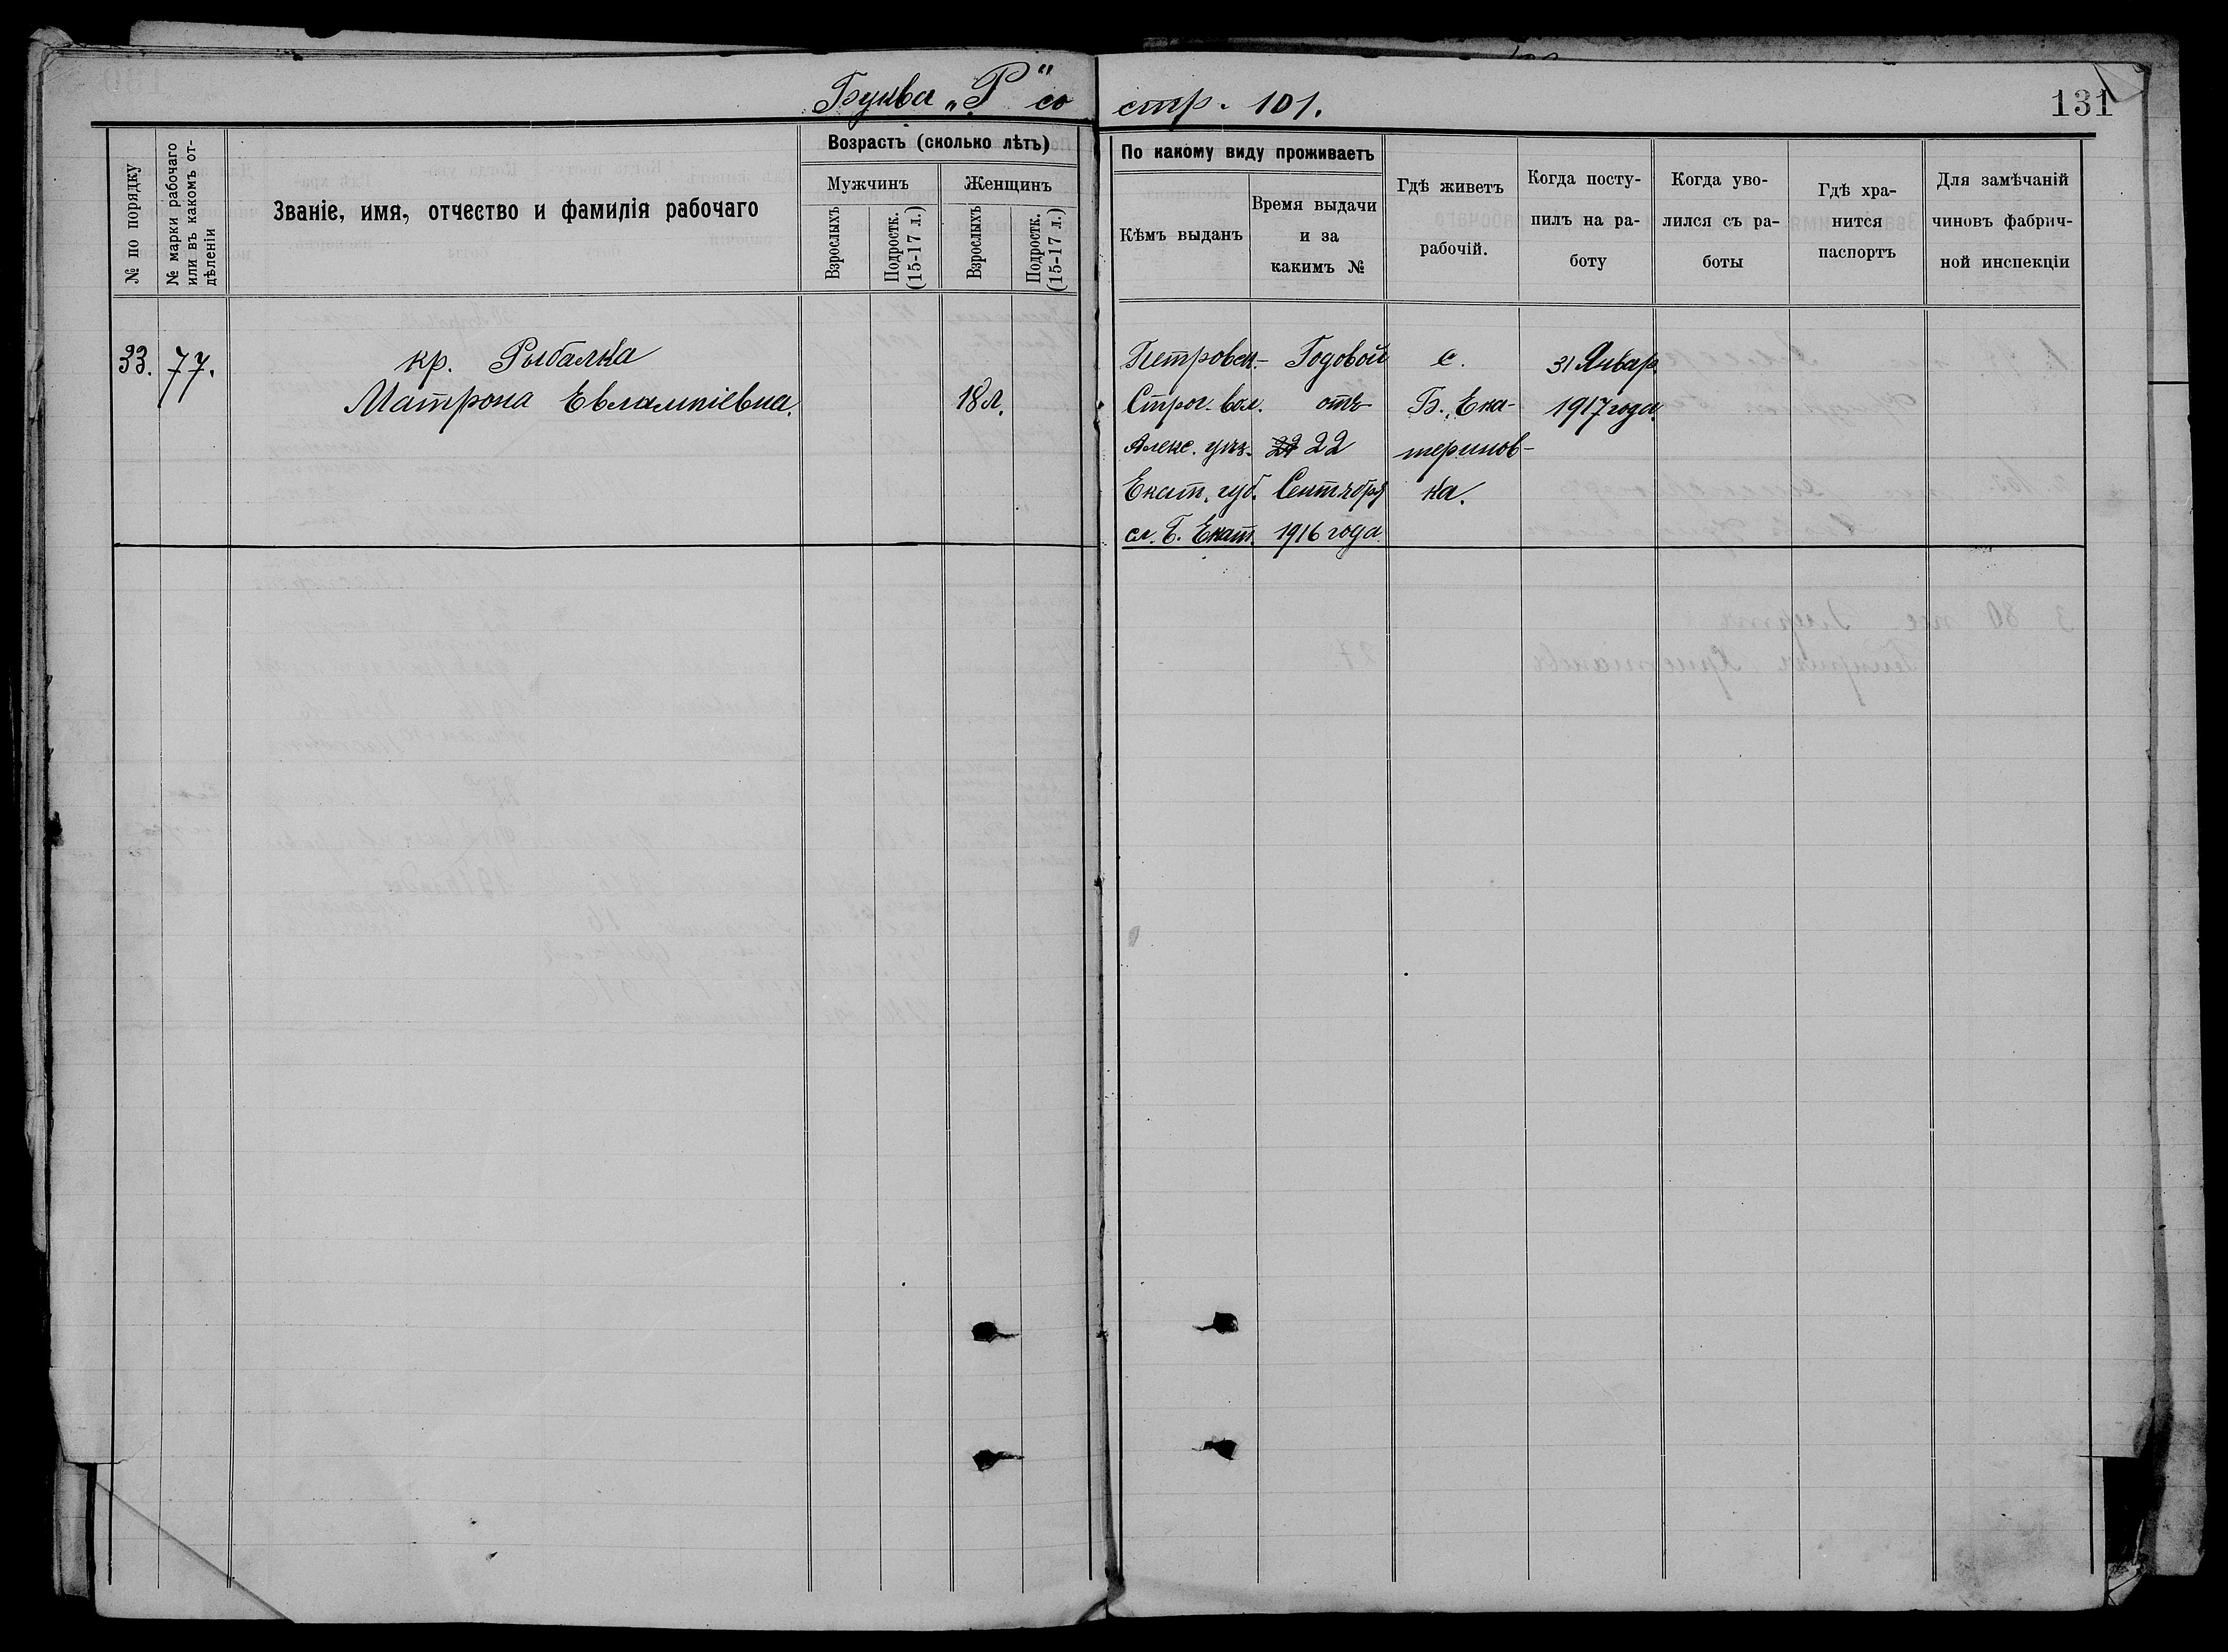 Буква „Р“ со стр. 101.
131
№ по порядку
№ марки рабочаго или въ какомъ отдѣленіи
Званіе, имя, отчество и фамилія рабочаго
Возрастъ (сколько лѣтъ)
Мужчинъ
Женщинъ
Взрослыхъ
Подростк. (15-17 л.)
Взрослыхъ
Подростк. (15-17 л.)
По какому виду проживаетъ
Кѣмъ выданъ
Время выдачи
и за
какимъ №
Гдѣ живетъ
рабочій.
Когда посту-
пилъ на ра-
боту
Когда уво-
лился съ ра-
боты
Гдѣ хра-
нится
паспортъ
Для замѣчаній
чиновъ фабрич-
ной инспекціи
33. 77.
кр. Рыбалка
Матрона Евлампіевна.
18 л.
Петровск.-
Строг. вол.
Алекс. уѣз.
Екат. губ.
сл. Б. Екат.
Годовой
отъ
22
Сентября
1916 года
с.
Б. Ека-
теринов-
ка.
31 Январ.
1917 года.